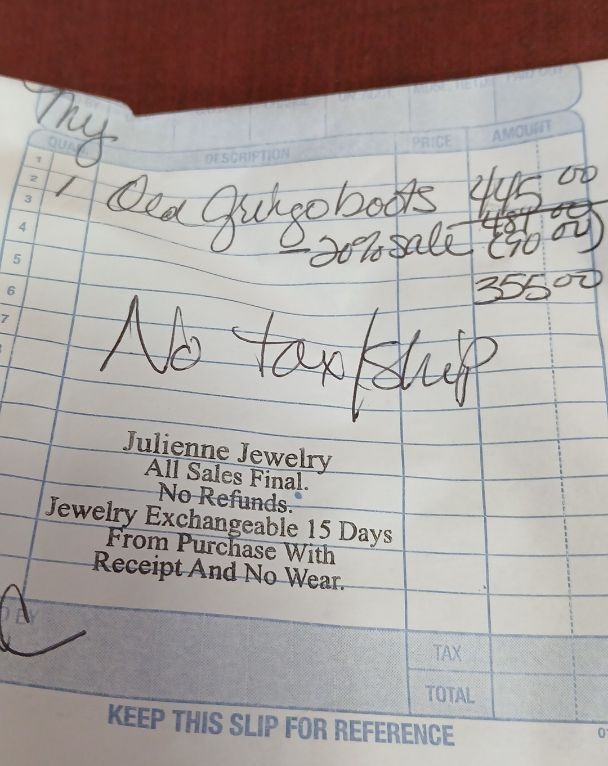 My
QUAN. DESCRIPTION PRICE AMOUNT
1
2
3 1 Old gringo boots 445 00
4 - 20% sale (90 00)
5
6 355 00
7 No tax/ship
Julienne Jewelry
All Sales Final.
No Refunds.
Jewelry Exchangeable 15 Days
From Purchase With
Receipt And No Wear.
BY
TAX
TOTAL
KEEP THIS SLIP FOR REFERENCE